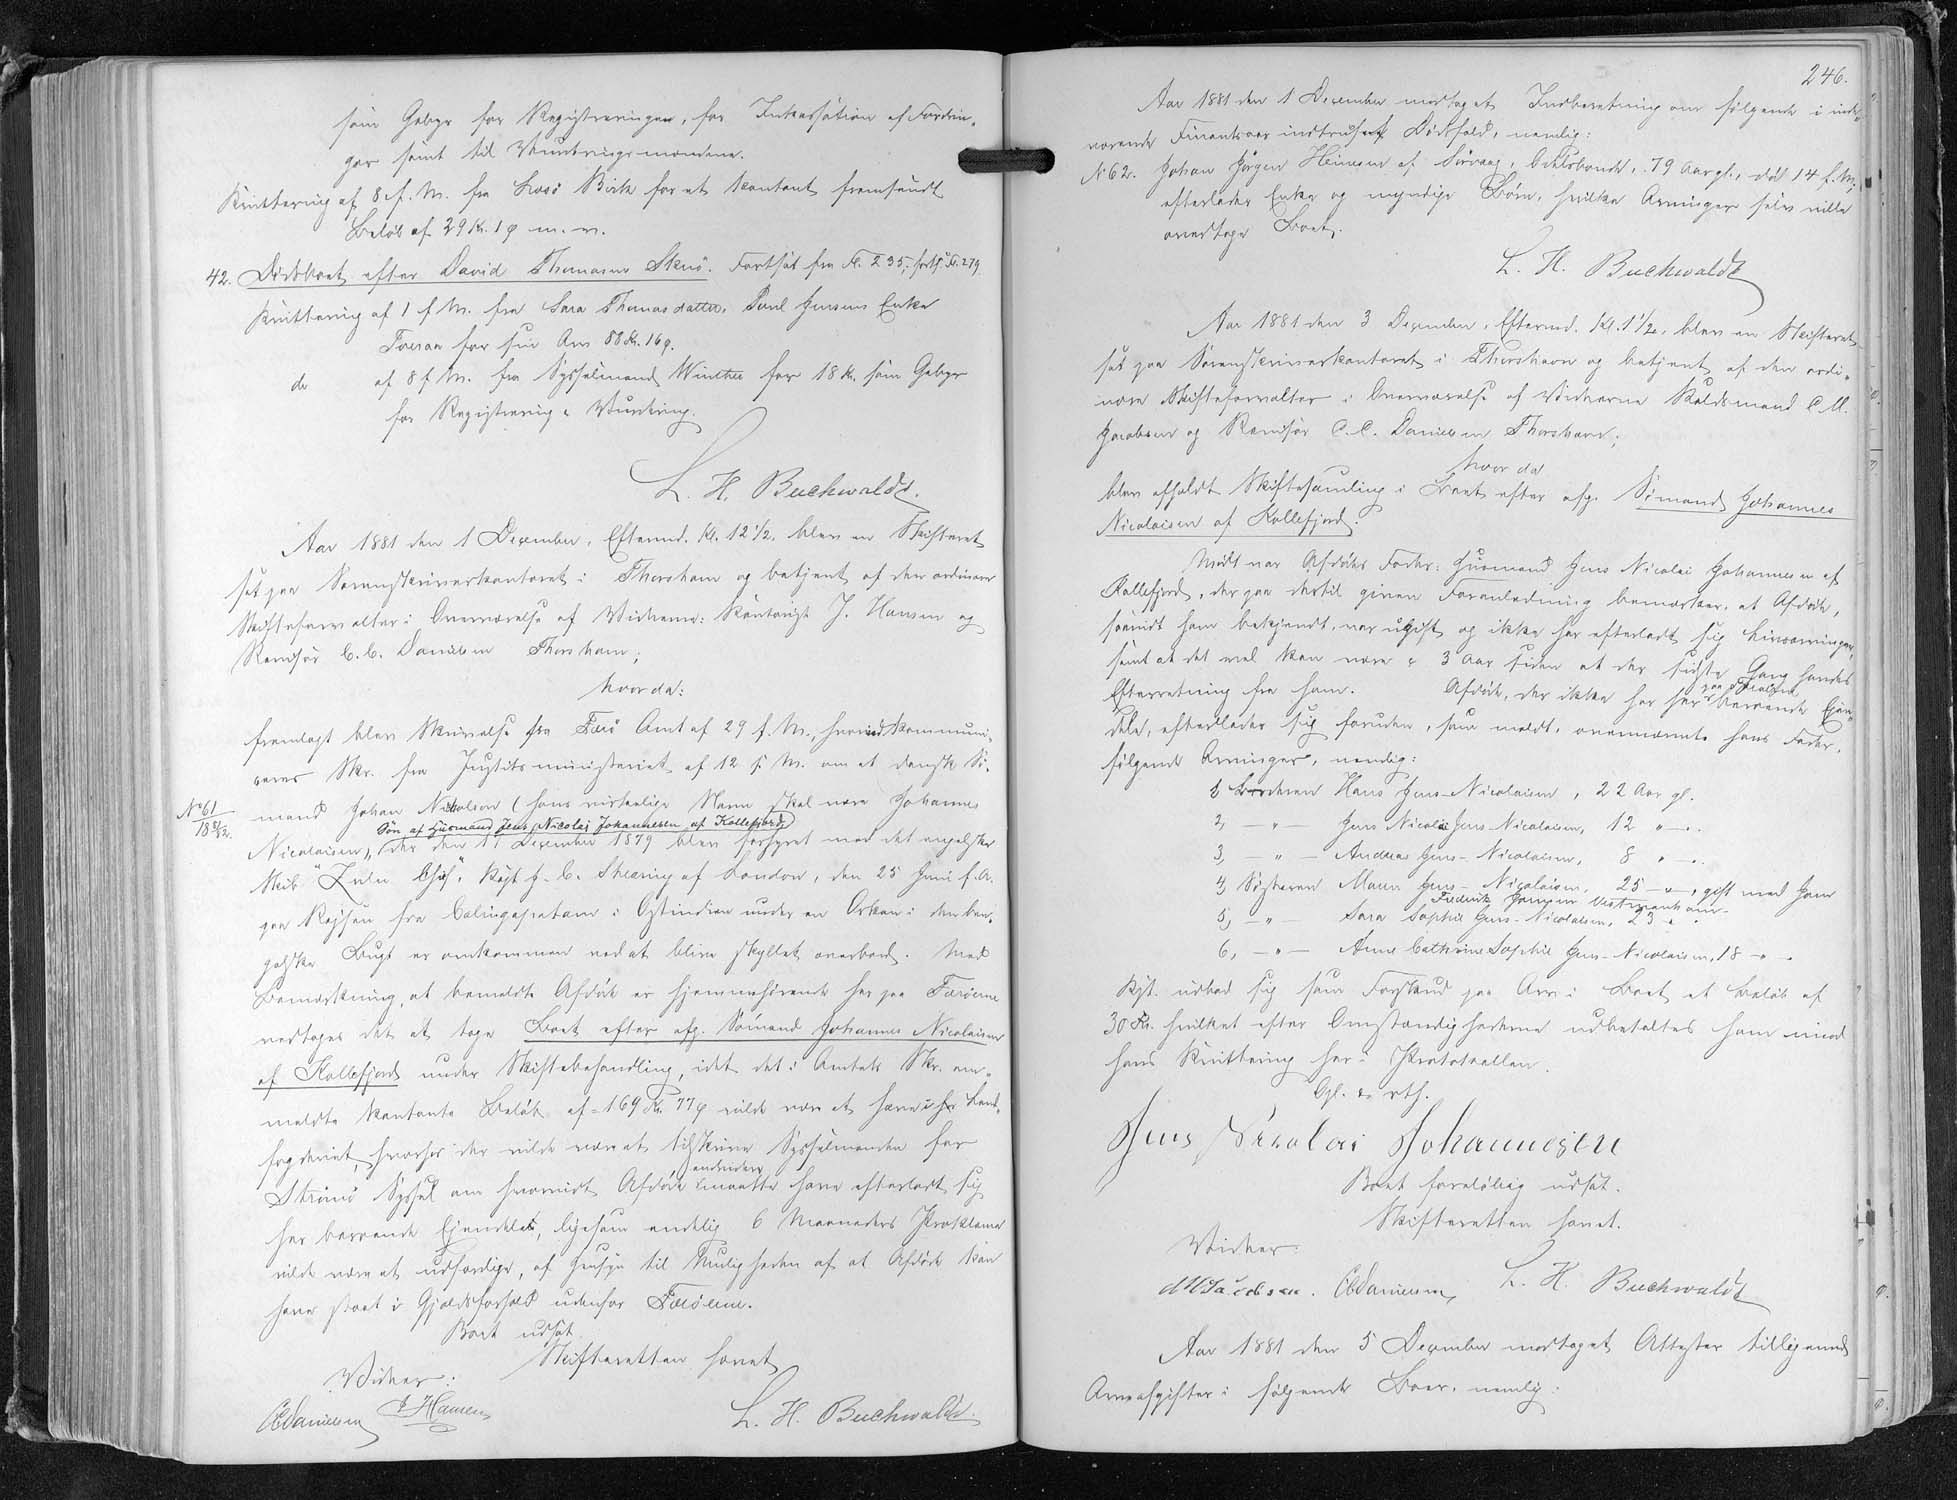 som Gebyr for Registreringen, for Inkassation af Fordrin-
ger samt til Vurderingsmændene.
Kvittering af 8 f. M. fra Suderö Birk for et kontant fremsendt
Beløb af 29 Kr. 1 ø m. m.
42. Dödsboet efter David Thomasen Skuö. Fortsat fra Fl. 235, forts. Fl. 279.
Kvittering af 1 f. M. fra Sara Thomasdatter, Poul Jensens Enke
for sin Arv 88 Kr. 16 ø.
do af 8 f. M. fra Sysselmand Winther for 18 Kr. som Gebyr
for Registrering & Vurdering.
L. H. Buchwaldt.
Aar 1881 den 1 December, Eftermd. Kl. 12 1/2, blev en Skifteret
sat paa Sorenskriverkontoret i Thorshavn og betjent af den ordinære
Skifteforvalter i Overværelse af Vidnerne: Kontorist J. Hansen og
Revisor C. C. Danielsen Thorshavn;
hvor da:
fremlagt blev Skrivelse fra Færö Amt af 29 f. M., hvorved kommuni-
ceres Skr. fra Justitsministeriet af 12 s. M. om at dansk Sö-
No 61
mand Johan Nicholson (hans virkelige Navn skal være Johannes
Søn af Huusmand Jens Nicolai Johannesen af Kollefjord)
Nicolaisen), der den 11 December 1879 blev forhyret med det engelske
Skib "Zulu Chief", Kapt. J. C. Shearing af London, den 25 Juni f. A.
paa Rejsen fra Calingapatam i Ostindien under en Orkan i den ben-
galske Bugt er omkommen ved at blive skyllet overbord. Med
Bemærkning, at bemeldte Afdøde er hjemmehørende her paa Færöerne
vedtoges det at tage Boet efter afg. Sömand Johannes Nicolaisen
af Kollefjord under Skiftebehandling, idet det i Amtets Skr. om-
meldte kontante Beløb af 169 Kr. 77 ø vilde være at hæve i hr. Land-
fogderiet, hvorhos der vilde være at tilskrive Sysselmanden for
Strömö Syssel om hvorvidt Afdøde endvidere maatte have efterladt sig
her beroende Ejendele, ligesom endelig 6 Maaneders Proklama
vilde være at udfærdige, af Hensyn til Muligheden af at Afdøde kan
have staaet i Gjældsforhold udenfor Færöerne.
Boet udsat
Skifteretten hævet
Vidner:
CCDanielsen J Hansen
L. H. Buchwaldt.
246.
Aar 1881 den 1 December modtaget Indberetning om følgende i inde-
værende Finantsaar indtrufne Dödsfald, nemlig:
No 62. Johan Jörgen Heinesen af Sörvaag, Odelsbonde, 79 Aar gl., död 14 f. M.,
efterlader Enke og myndige Börn, hvilke Arvinger selv ville
overtage Boet.
L. H. Buchwaldt
Aar 1881 den 3 December, Eftermd. Kl. 1 1/2, blev en Skifteret
sat paa Sorenskriverkontoret i Thorshavn og betjent af den ordi-
nære Skifteforvalter i Overværelse af Vidnerne Rådsmand C. M.
Jacobsen og Revisor C. C. Danielsen Thorshavn;
hvor da
blev afholdt Skiftesamling i Boet efter afg. Sömand Johannes
Nicolaisen af Kollefjord.
Mödt var Afdödes Fader: Huusmand Jens Nicolai Johannesen af
Kollefjord, der paa dertil given Foranledning bemærker, at Afdöde,
saavidt ham bekjendt, var ugift og ikke har efterladt sig Livsarvinger,
samt at det vel kan være c. 3 Aar siden at der sidste Gang havdes
Efterretning fra ham. Afdöde, der ikke har her paa Færøerne beroende Ejen-
dele, efterlader sig foruden, som meldt, ovennævnte hans Fader,
følgende Arvinger, nemlig:
1, Broderen Hans Jens-Nicolaisen, 22 Aar gl.
2, —"— Jens Nicolai Jens-Nicolaisen, 12 "—.
3, —"— Andreas Jens-Nicolaisen, 8 "—.
4, Søsteren Maren Jens-Nicolaisen, 25 —"—, gift med Hans
Frederik Joensen Vestmanhavn
5, —"— Sara Sophie Jens-Nicolaisen, 23 "
6, —"— Anne Cathrine Sophie Jens-Nicolaisen, 18 —"—.
Kpt. udbad sig som Forskud paa Arv i Boet et Beløb af
30 Kr. hvilket efter Omstændighederne udbetaltes ham imod
hans Kvittering her i Protokollen.
Opl. & rtf.
Jens Nicolai Johannesen
Boet foreløbig udsat.
Skifteretten hævet.
Vidner:
CMJacobsen. CCDanielsen, L. H. Buchwaldt
Aar 1881 den 5 December modtaget Attester tilligemed
Arveafgifter i følgende Boer, nemlig: